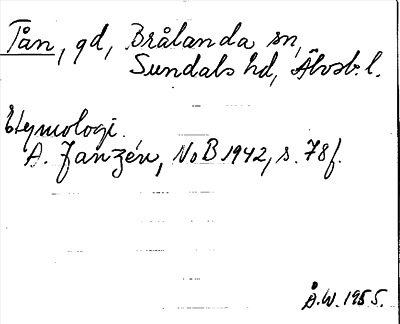 Tån, gd, Brålanda sn,
Sundals hd, Älvsb. l.
Etymologi.
A. Janzén, NoB 1942, s. 78f.
Å.W. 1955.